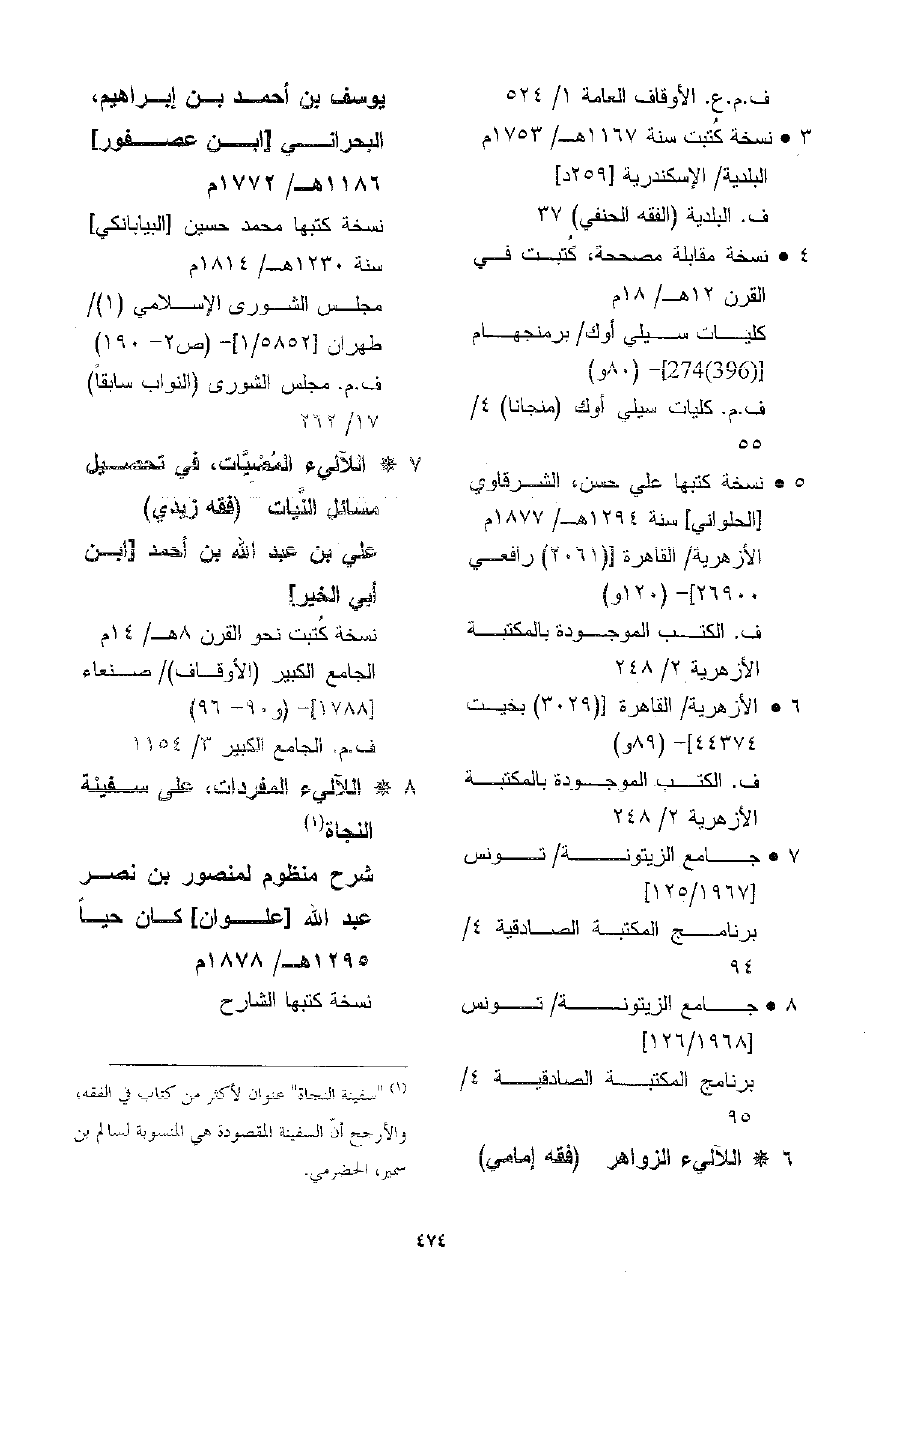 ف.م.ع. الأوقاف العامة ١/ ٥٢٤
٣ • نسخة كُتبت سنة ١١٦٧هـ/ ١٧٥٣م
البلدية/ الإسكندرية [٢٥٩د]
ف. البلدية (الفقه الحنفي) ٣٧
٤ • نسخة مقابلة مصححة، كُتبت في
القرن ١٢هـ/ ١٨م
كليات سيلي أوك/ برمنجهام
[274(396)]- (٨٠و)
ف.م. كليات سيلي أوك (منجانا) ٤/
٥٥
٥ • نسخة كتبها علي حسن، الشرقاوي
[الحلواني] سنة ١٢٩٤هـ/ ١٨٧٧م
الأزهرية/ القاهرة [(٢٠٦١) رافعي
٢٦٩٠٠]- (١٢٠و)
ف. الكتب الموجودة بالمكتبة
الأزهرية ٢/ ٢٤٨
٦ • الأزهرية/ القاهرة [(٣٠٢٩) بخيت
٤٤٣٧٤]- (٨٩و)
ف. الكتب الموجودة بالمكتبة
الأزهرية ٢/ ٢٤٨
٧ • جامع الزيتونة/ تونس
[١٢٥/١٩٦٧]
برنامج المكتبة الصادقية ٤/
٩٤
٨ • جامع الزيتونة/ تونس
[١٢٦/١٩٦٨]
برنامج المكتبة الصادقية ٤/
٩٥
٦ * اللآليء الزواهر (فقه إمامي)
يوسف بن أحمد بن إبراهيم،
البحراني [ابن عصفور]
١١٨٦هـ/ ١٧٧٢م
نسخة كتبها محمد حسين [البيابانكي]
سنة ١٢٣٠هـ/ ١٨١٤م
مجلس الشورى الإسلامي (١)/
طهران [١/٥٨٥٢]- (ص٢- ١٩٠)
ف.م. مجلس الشورى (النواب سابقاً)
١٧/ ٢٦٢
٧ * اللآليء المُضيَّات، في تحصيل
مسائل النيَّات (فقه زيدي)
علي بن عبد الله بن أحمد [ابن
أبي الخير]
نسخة كُتبت نحو القرن ٨هـ/ ١٤م
الجامع الكبير (الأوقاف)/ صنعاء
[١٧٨٨]- (و٩٠- ٩٦)
ف.م. الجامع الكبير ٣/ ١١٥٤
٨ * اللآليء المفردات، على سفينة
النجاة(١)
شرح منظوم لمنصور بن نصر
عبد الله [علوان] كان حياً
١٢٩٥هـ/ ١٨٧٨م
نسخة كتبها الشارح
(١) "سفينة النجاة" عنوان لأكثر من كتاب في الفقه،
والأرجح أنّ السفينة المقصودة هي المنسوبة لسالم بن
سمير، الحضرمي.
٤٧٤